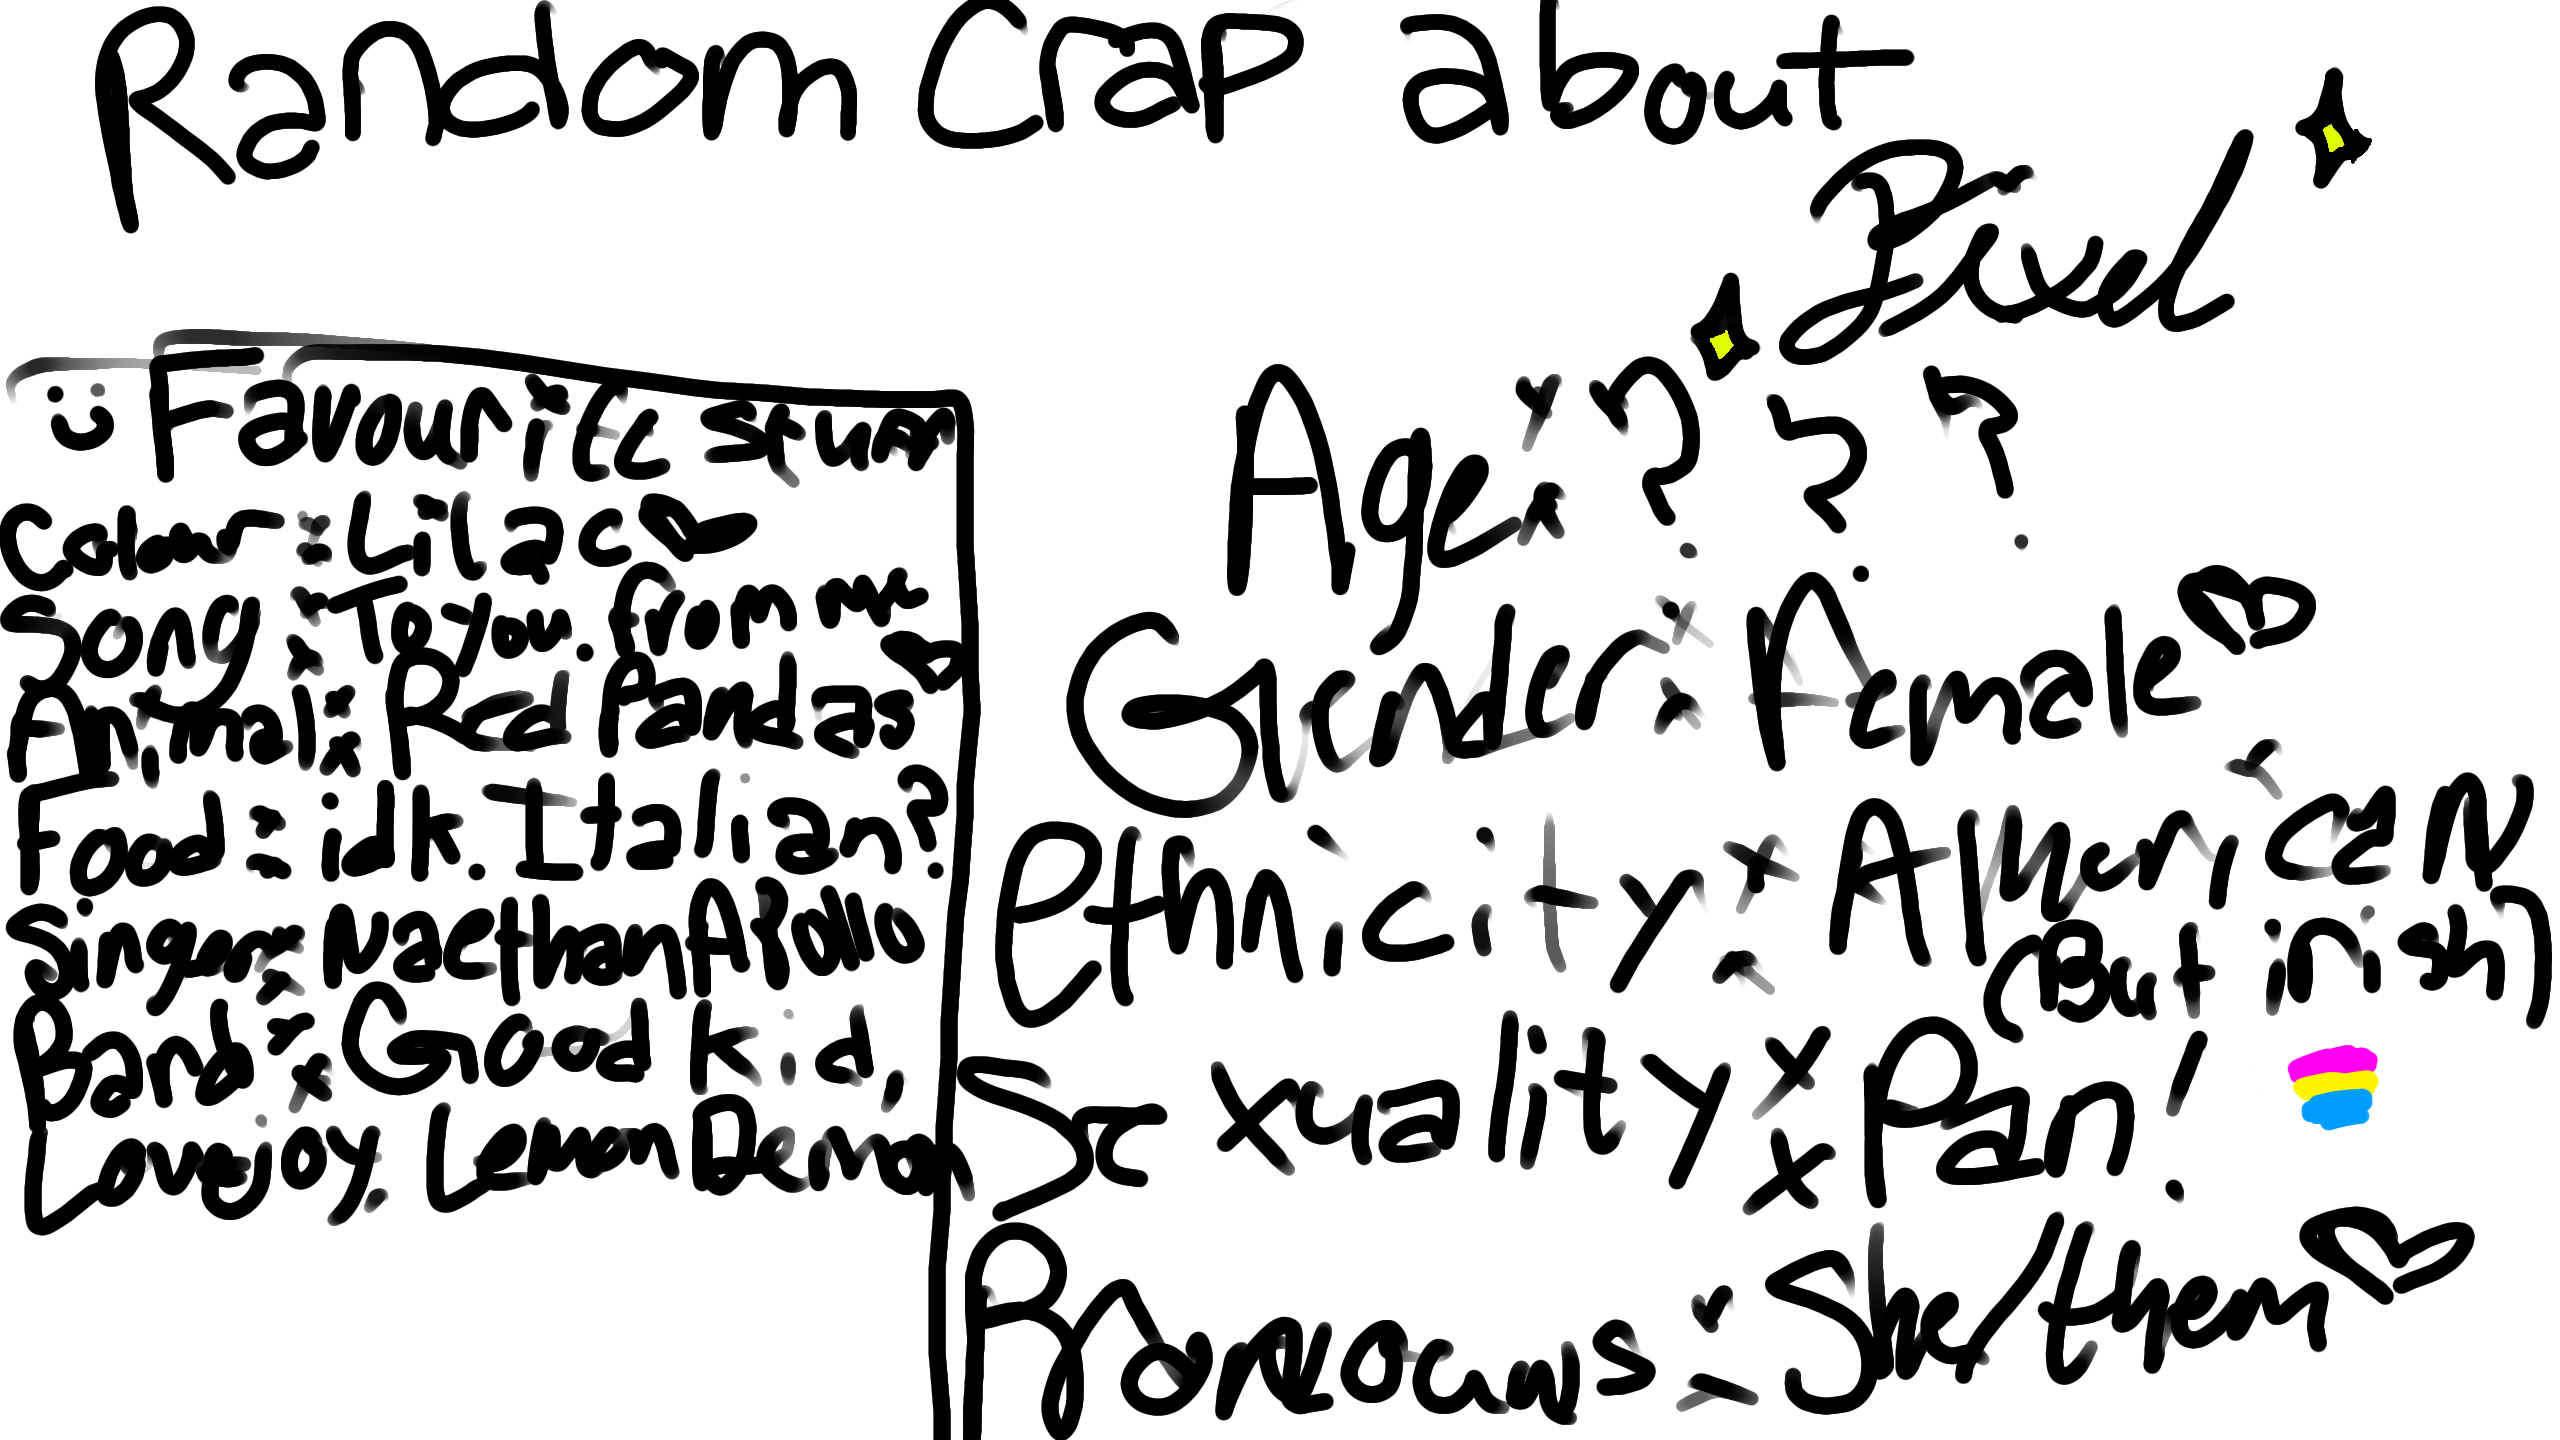 Random Crap about
Pixel
:) Favourite stuff
Colour: Lilac
Song: To you. from me
Animal: Red Pandas
Food: idk. Italian?
Singer: Naethan Apollo
Band: Good kid,
Lovejoy. Lemon Demon
Age: ???
Gender: Female
Ethnicity: American
(But irish)
Sexuality: Pan!
Pronouns: She/them